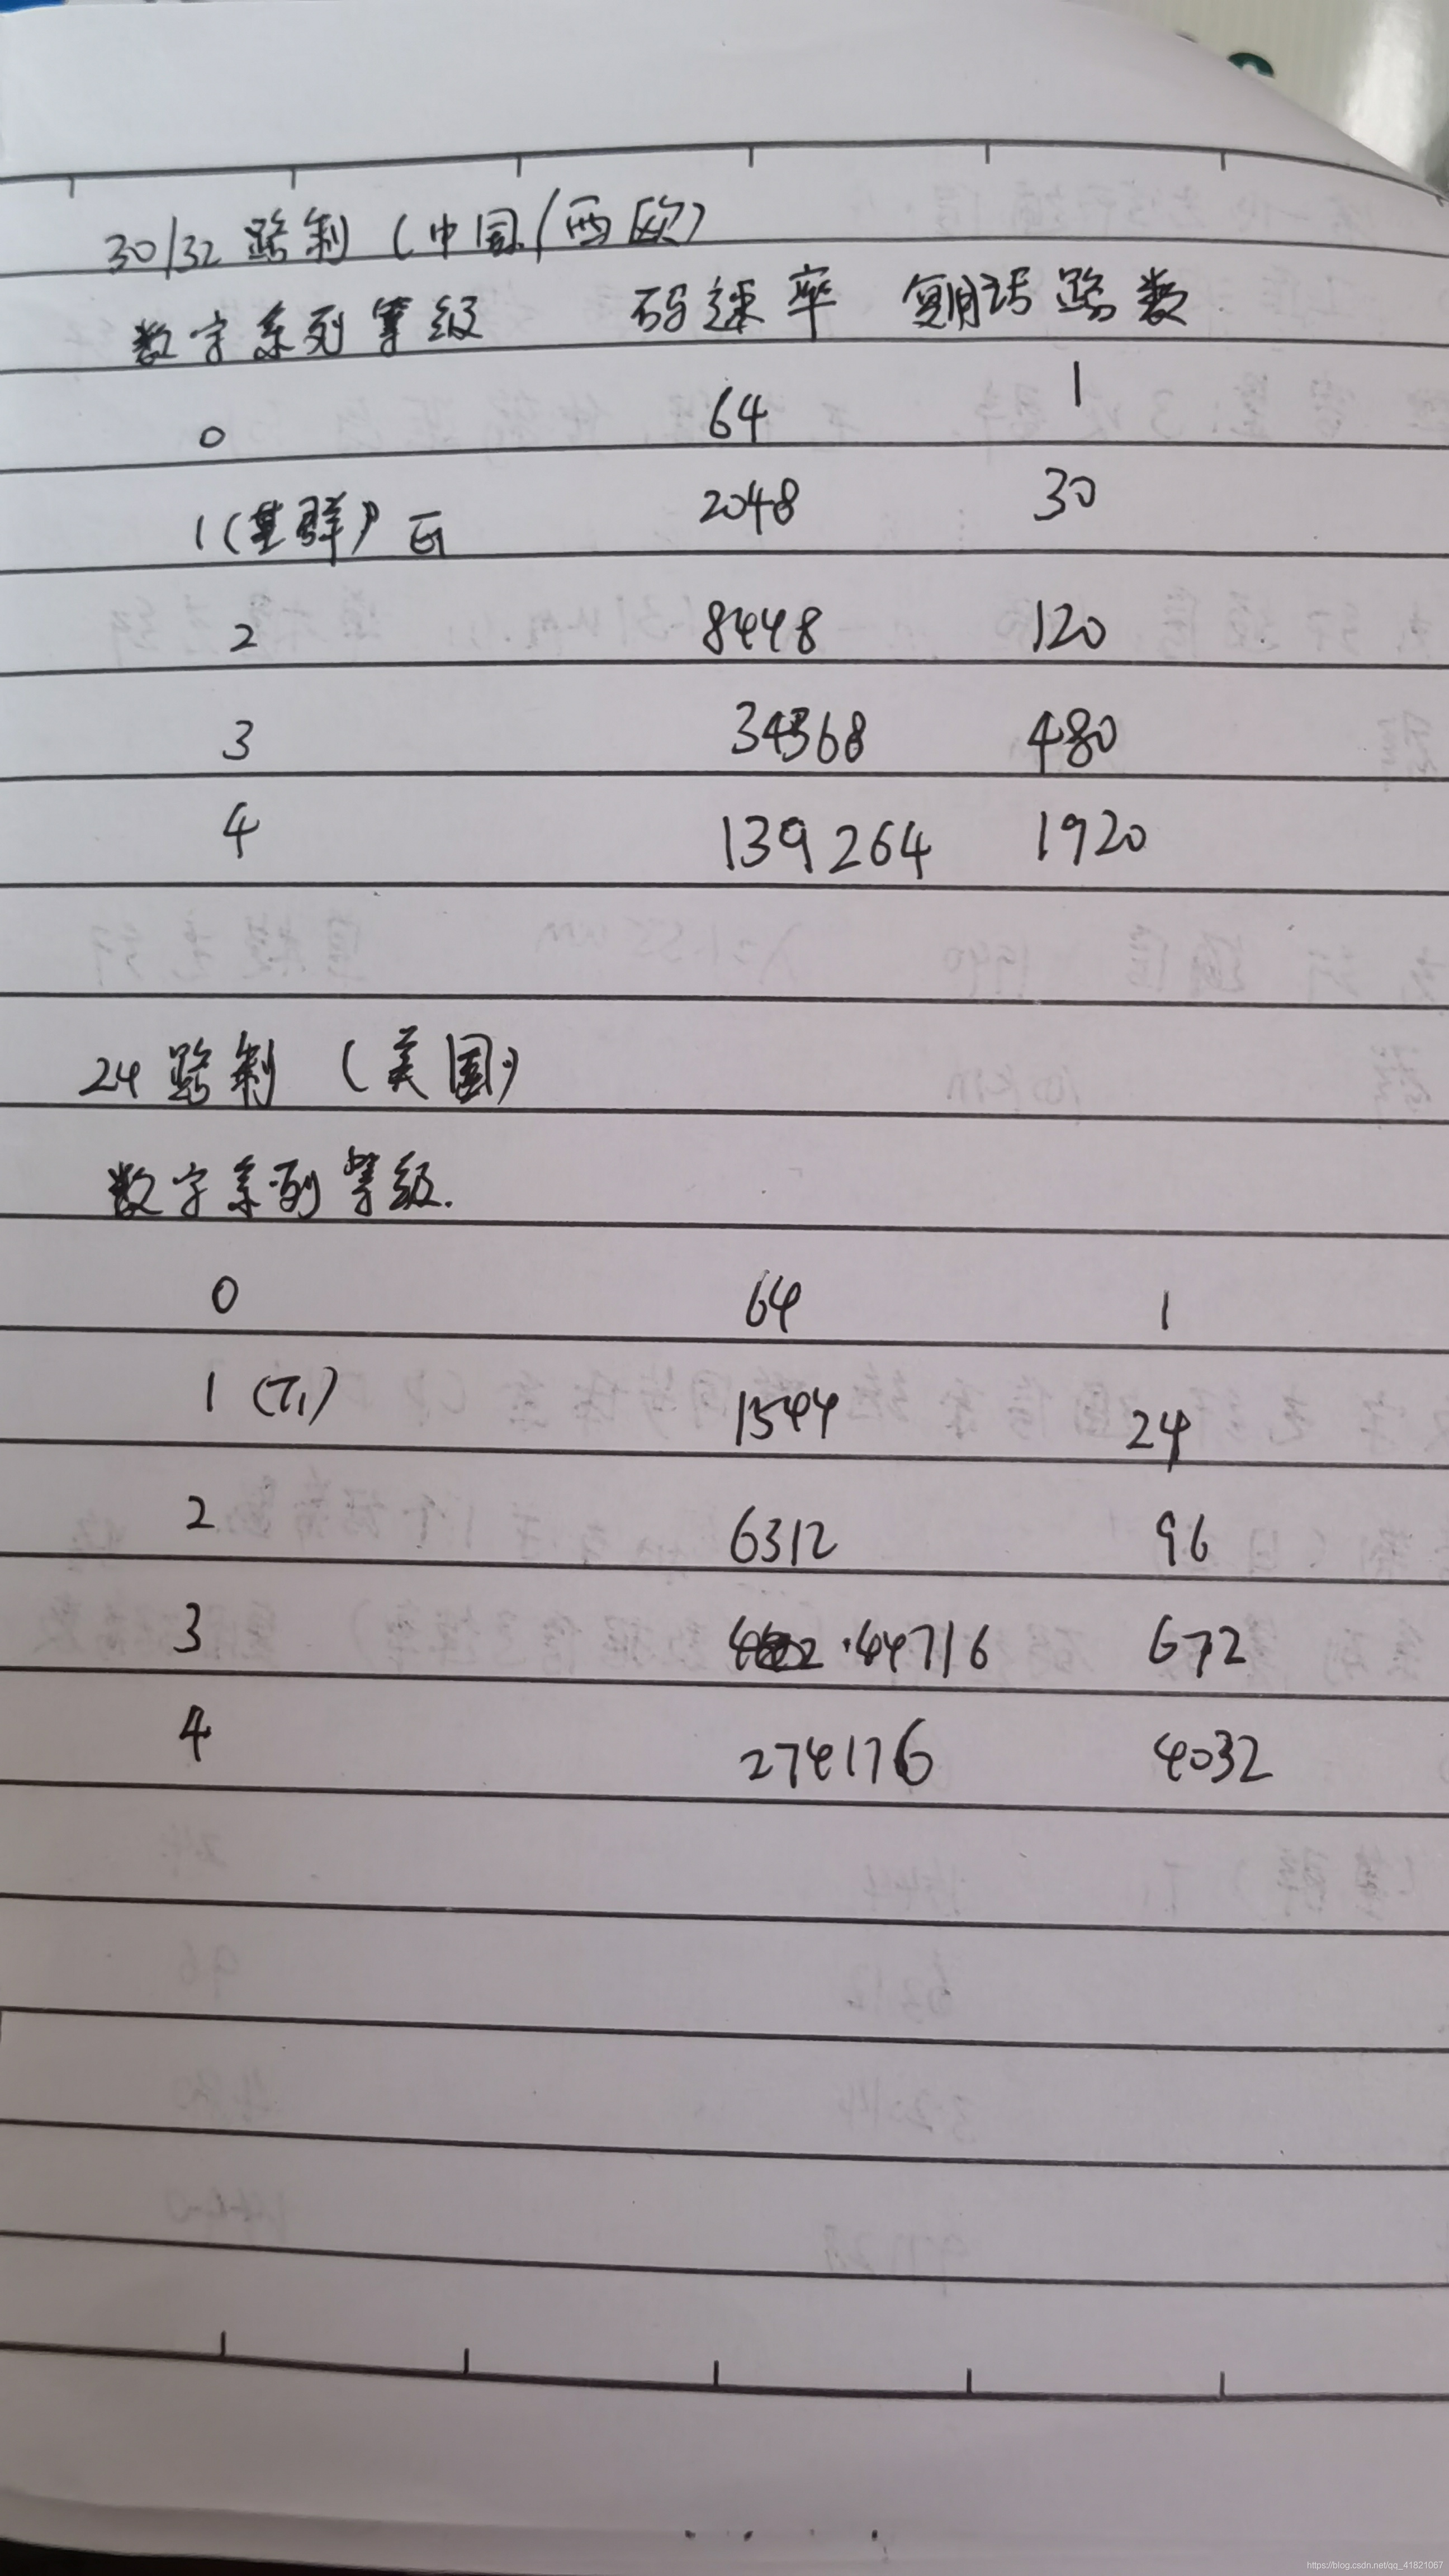 30/32 路制 (中国/西欧)
数字系列等级 码速率 复用话路数
0 64 1
1(基群) E1 2048 30
2 8448 120
3 34368 480
4 139264 1920
24 路制 (美国)
数字系列等级.
0 64 1
1 (T1) 1544 24
2 6312 96
3 44716 672
4 274176 4032
https://blog.csdn.net/qq_41821067